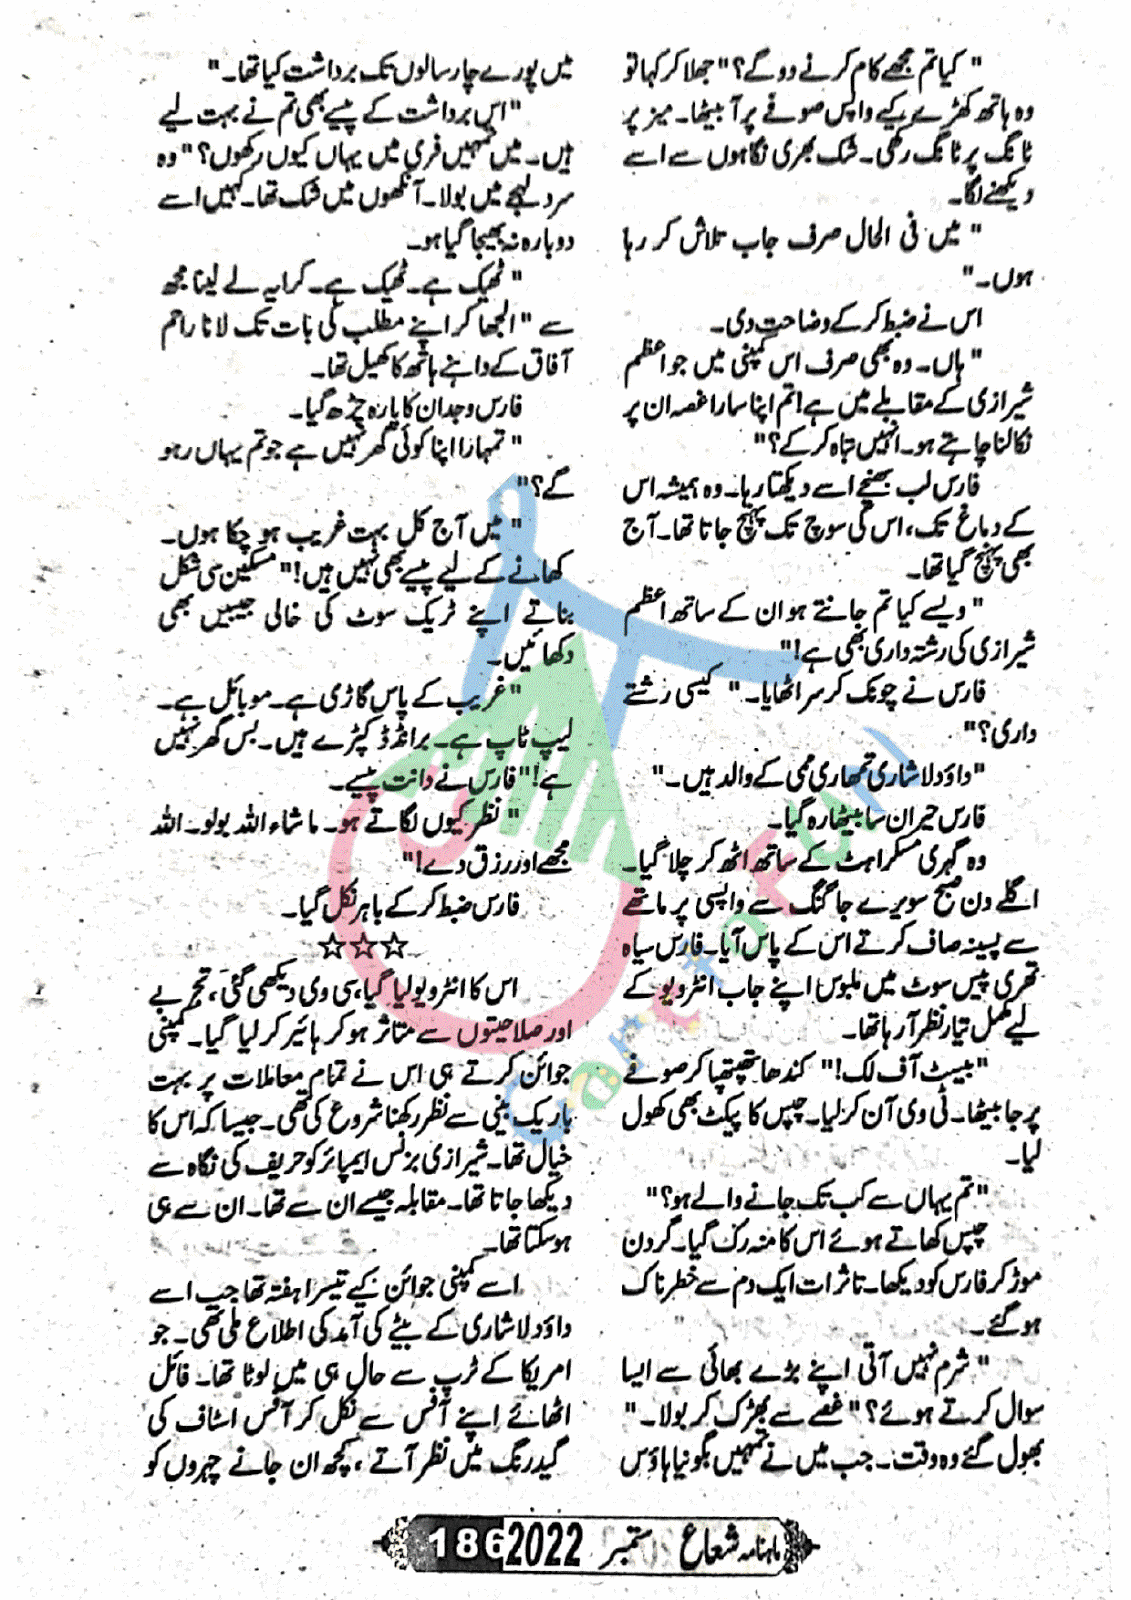 " کیا تم مجھے کام کرنے دو گے؟" جھلا کر کہا تو
وہ ہاتھ کھڑے کیے واپس صوفے پر آ بیٹھا۔ میز پر
ٹانگ پر ٹانگ رکھی۔ شک بھری نگاہوں سے اسے
دیکھنے لگا۔
" میں فی الحال صرف جاب تلاش کر رہا
ہوں۔"
اس نے ضبط کر کے وضاحت دی۔
" ہاں۔ وہ بھی صرف اس کمپنی میں جو اعظم
شیرازی کے مقابلے میں ہے! تم اپنا سارا غصہ ان پر
نکالنا چاہتے ہو۔ انہیں تباہ کر کے؟"
فارس لب بھینچے اسے دیکھتا رہا۔ وہ ہمیشہ اس
کے دماغ تک، اس کی سوچ تک پہنچ جاتا تھا۔ آج
بھی پہنچ گیا تھا۔
" ویسے کیا تم جانتے ہو ان کے ساتھ اعظم
شیرازی کی رشتہ داری بھی ہے!"
فارس نے چونک کر سر اٹھایا۔ " کیسی رشتے
داری؟"
"داؤد لاشاری تمھاری ممی کے والد ہیں۔"
فارس حیران سا بیٹھا رہ گیا۔
وہ گہری مسکراہٹ کے ساتھ اٹھ کر چلا گیا۔
اگلے دن صبح سویرے جاگنگ سے واپسی پر ماتھے
سے پسینہ صاف کرتے اس کے پاس آیا۔ فارس سیاہ
تھری پیس سوٹ میں ملبوس اپنے جاب انٹرویو کے
لیے مکمل تیار نظر آ رہا تھا۔
"بیسٹ آف لک!" کندھا تھپتھپا کر صوفے
پر جا بیٹھا۔ ٹی وی آن کر لیا۔ چپس کا پیکٹ بھی کھول
لیا۔
"تم یہاں سے کب تک جانے والے ہو؟"
چپس کھاتے ہوئے اس کا منہ رک گیا۔ گردن
موڑ کر فارس کو دیکھا۔ تاثرات ایک دم سے خطرناک
ہو گئے۔
" شرم نہیں آتی اپنے بڑے بھائی سے ایسا
سوال کرتے ہوئے؟" غصے سے بھڑک کر بولا۔ "
بھول گئے وہ وقت۔ جب میں نے تمہیں بگونیا ہاؤس
میں پورے چار سالوں تک برداشت کیا تھا۔"
"اس برداشت کے پیسے بھی تم نے بہت لیے
ہیں۔ میں تمہیں فری میں یہاں کیوں رکھوں؟" وہ
سرد لہجے میں بولا۔ آنکھوں میں شک تھا۔ کہیں اسے
دوبارہ نہ بھیجا گیا ہو۔
" ٹھیک ہے۔ ٹھیک ہے۔ کرایہ لے لینا مجھ
سے " الجھا کر اپنے مطلب کی بات تک لانا راحم
آفاق کے داہنے ہاتھ کا کھیل تھا۔
فارس وجدان کا پارہ چڑھ گیا۔
" تمہارا اپنا کوئی گھر نہیں ہے جو تم یہاں رہو
گے؟"
" میں آج کل بہت غریب ہو چکا ہوں۔
کھانے کے لیے پیسے بھی نہیں ہیں!" مسکین سی شکل
بناتے اپنے ٹریک سوٹ کی خالی جیبیں بھی
دکھائیں۔
"غریب کے پاس گاڑی ہے۔ موبائل ہے۔
لیپ ٹاپ ہے۔ برانڈڈ کپڑے ہیں۔ بس گھر نہیں
ہے!" فارس نے دانت پیسے۔
" نظر کیوں لگاتے ہو۔ ماشاء اللہ بولو۔ اللہ
مجھے اور رزق دے!"
فارس ضبط کر کے باہر نکل گیا۔
☆☆☆
اس کا انٹرویو لیا گیا، سی وی دیکھی گئی، تجربے
اور صلاحیتوں سے متاثر ہو کر ہائیر کر لیا گیا۔ کمپنی
جوائن کرتے ہی اس نے تمام معاملات پر بہت
باریک بینی سے نظر رکھنا شروع کی تھی۔ جیسا کہ اس کا
خیال تھا۔ شیرازی بزنس ایمپائر کو حریف کی نگاہ سے
دیکھا جاتا تھا۔ مقابلہ جیسے ان سے تھا۔ ان سے ہی
ہو سکتا تھا۔
اسے کمپنی جوائن کیے تیسرا ہفتہ تھا جب اسے
داؤد لاشاری کے بیٹے کی آمد کی اطلاع ملی تھی۔ جو
امریکا کے ٹرپ سے حال ہی میں لوٹا تھا۔ فائل
اٹھائے اپنے آفس سے نکل کر آفس اسٹاف کی
گیدرنگ میں نظر آتے، کچھ ان جانے چہروں کو
ماہنامہ شعاع ستمبر 2022 186